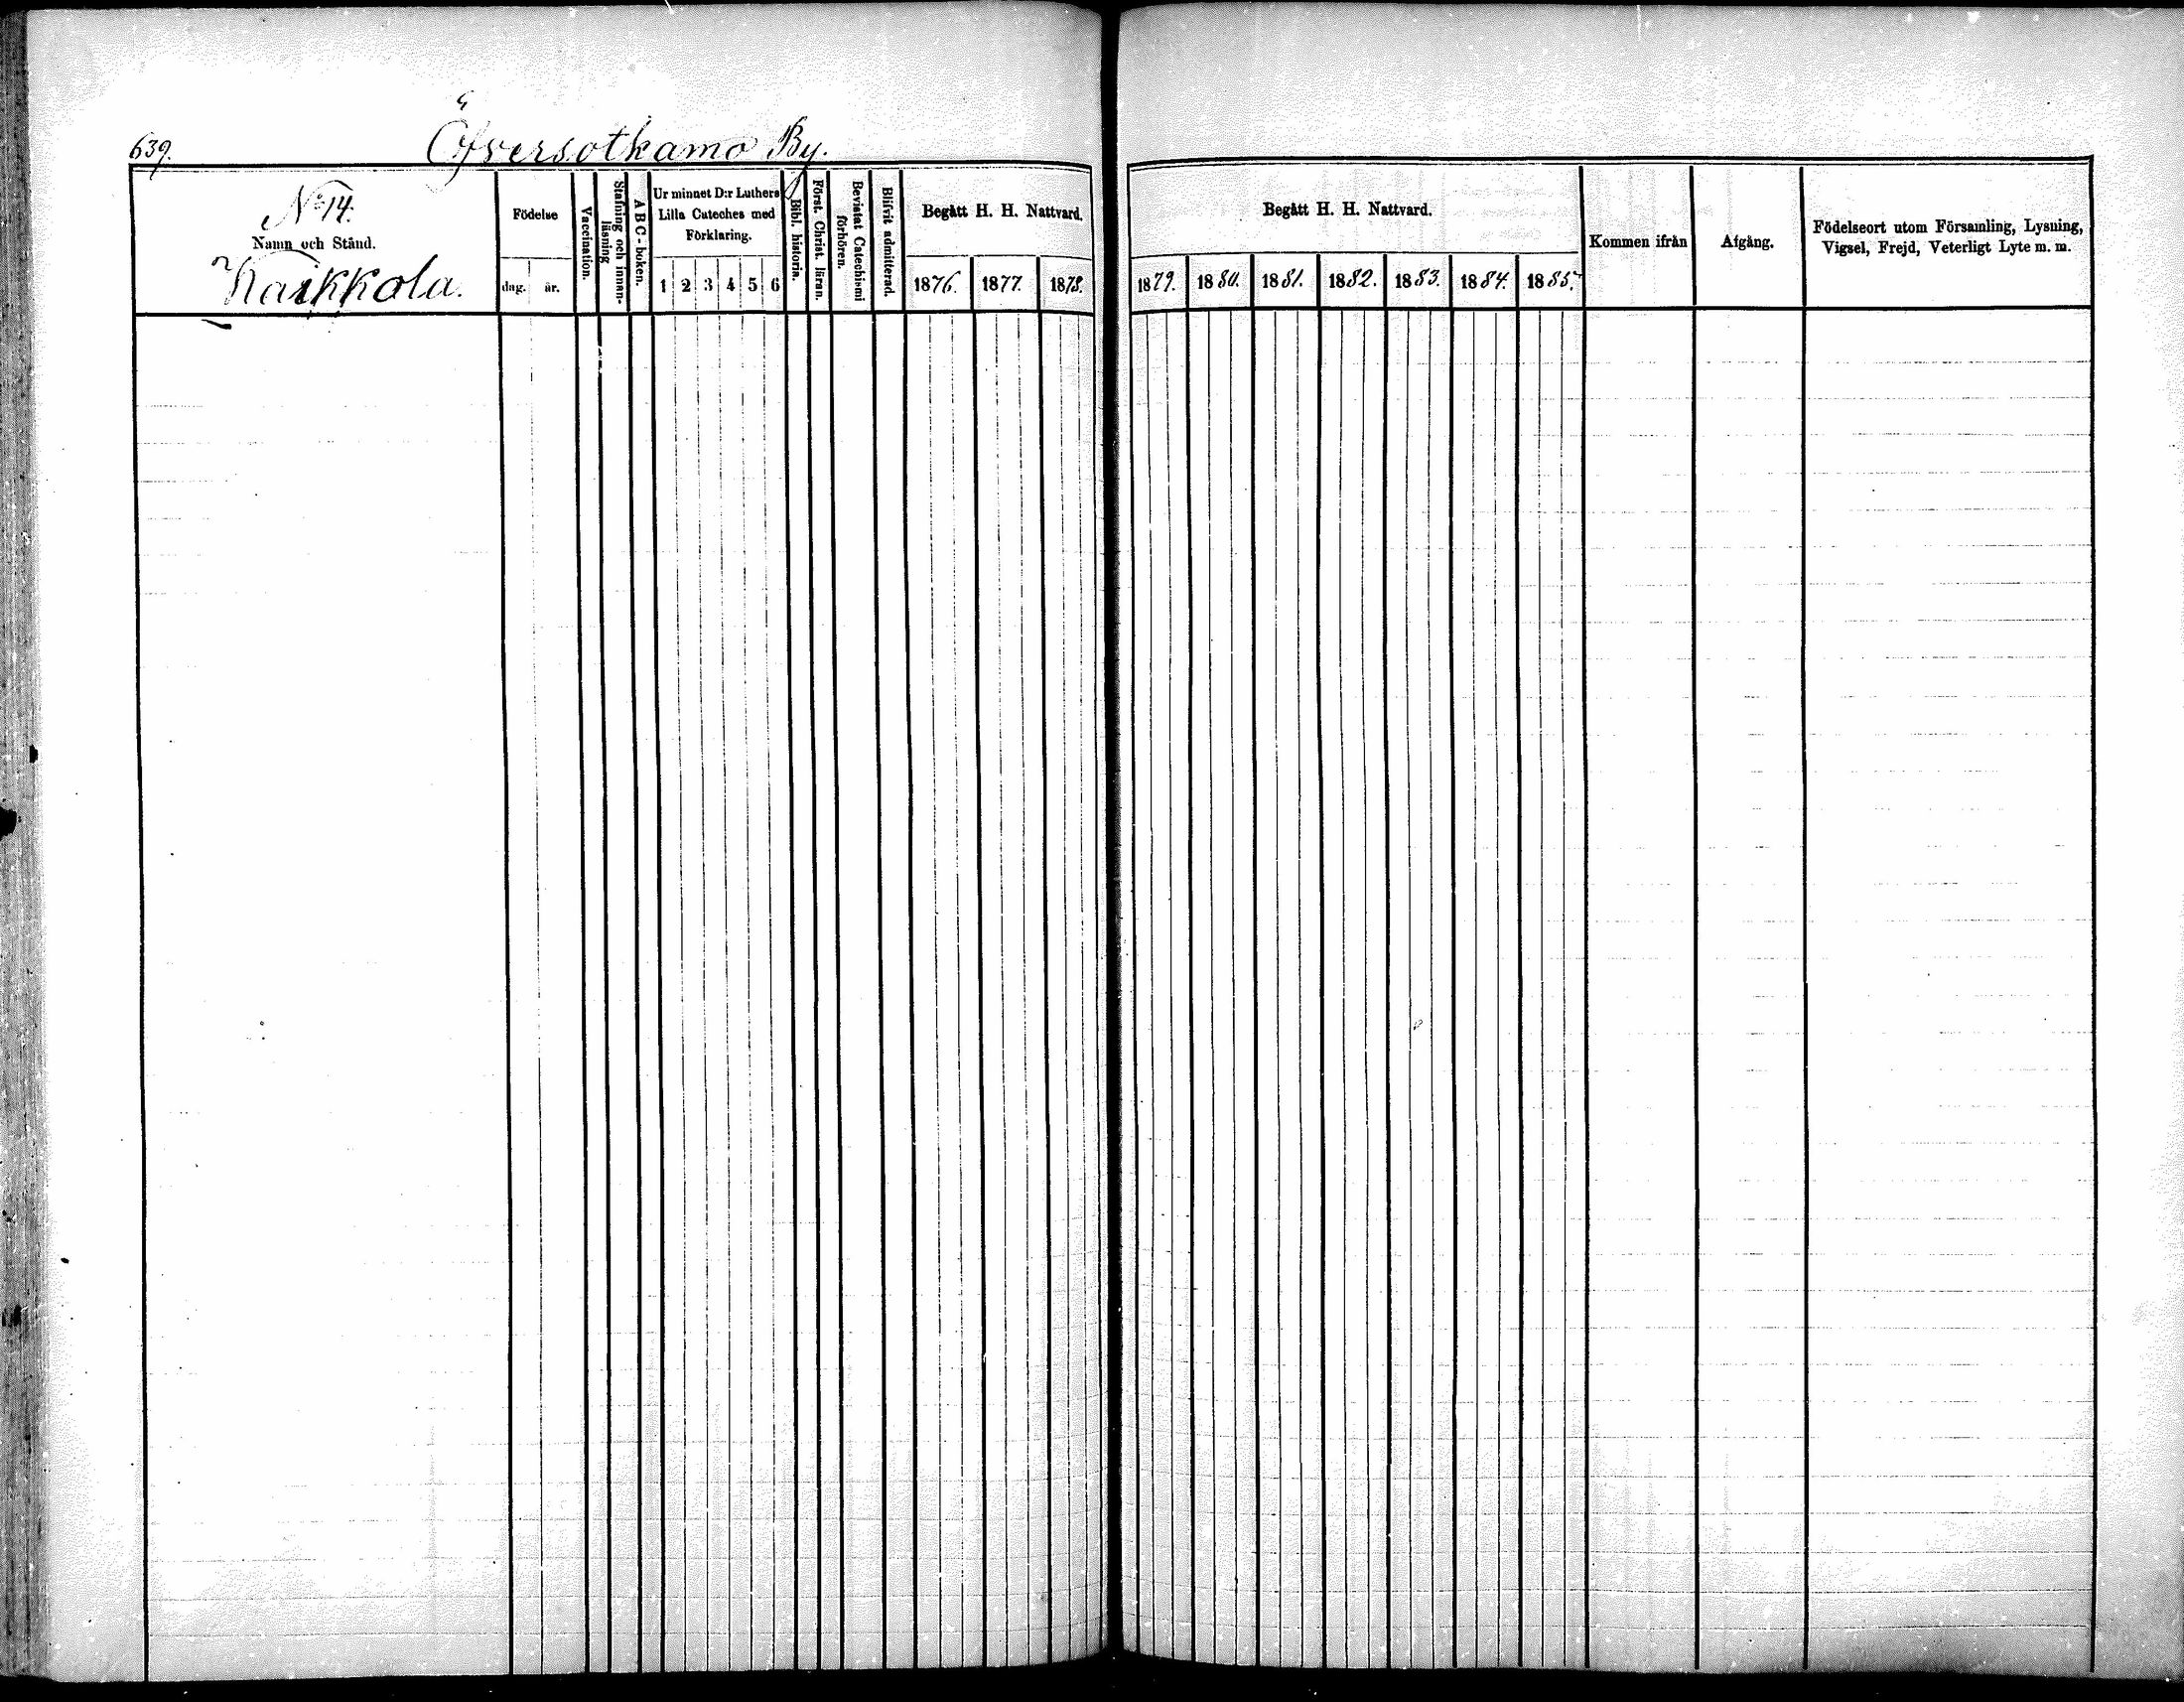 639.
Öfversotkamo By.
No 14.
Namn och Stånd.
Kaikkola.
Födelse
dag. år.
Vaccination.
Stafning och innanläsning
A B C-boken.
Ur minnet D:r Luthers Lilla Cateches med Förklaring.
1 2 3 4 5 6
Bibl. historia.
Först. Christ. läran.
Bevistat Catechismi förhören.
Blifvit admitterad.
Begått H. H. Nattvard.
1876. 1877. 1878.
Begått H. H. Nattvard.
1879. 1880. 1881. 1882. 1883. 1884. 1885.
Kommen ifrån
Afgång.
Födelseort utom Församling, Lysning,
Vigsel, Frejd, Veterligt Lyte m. m.